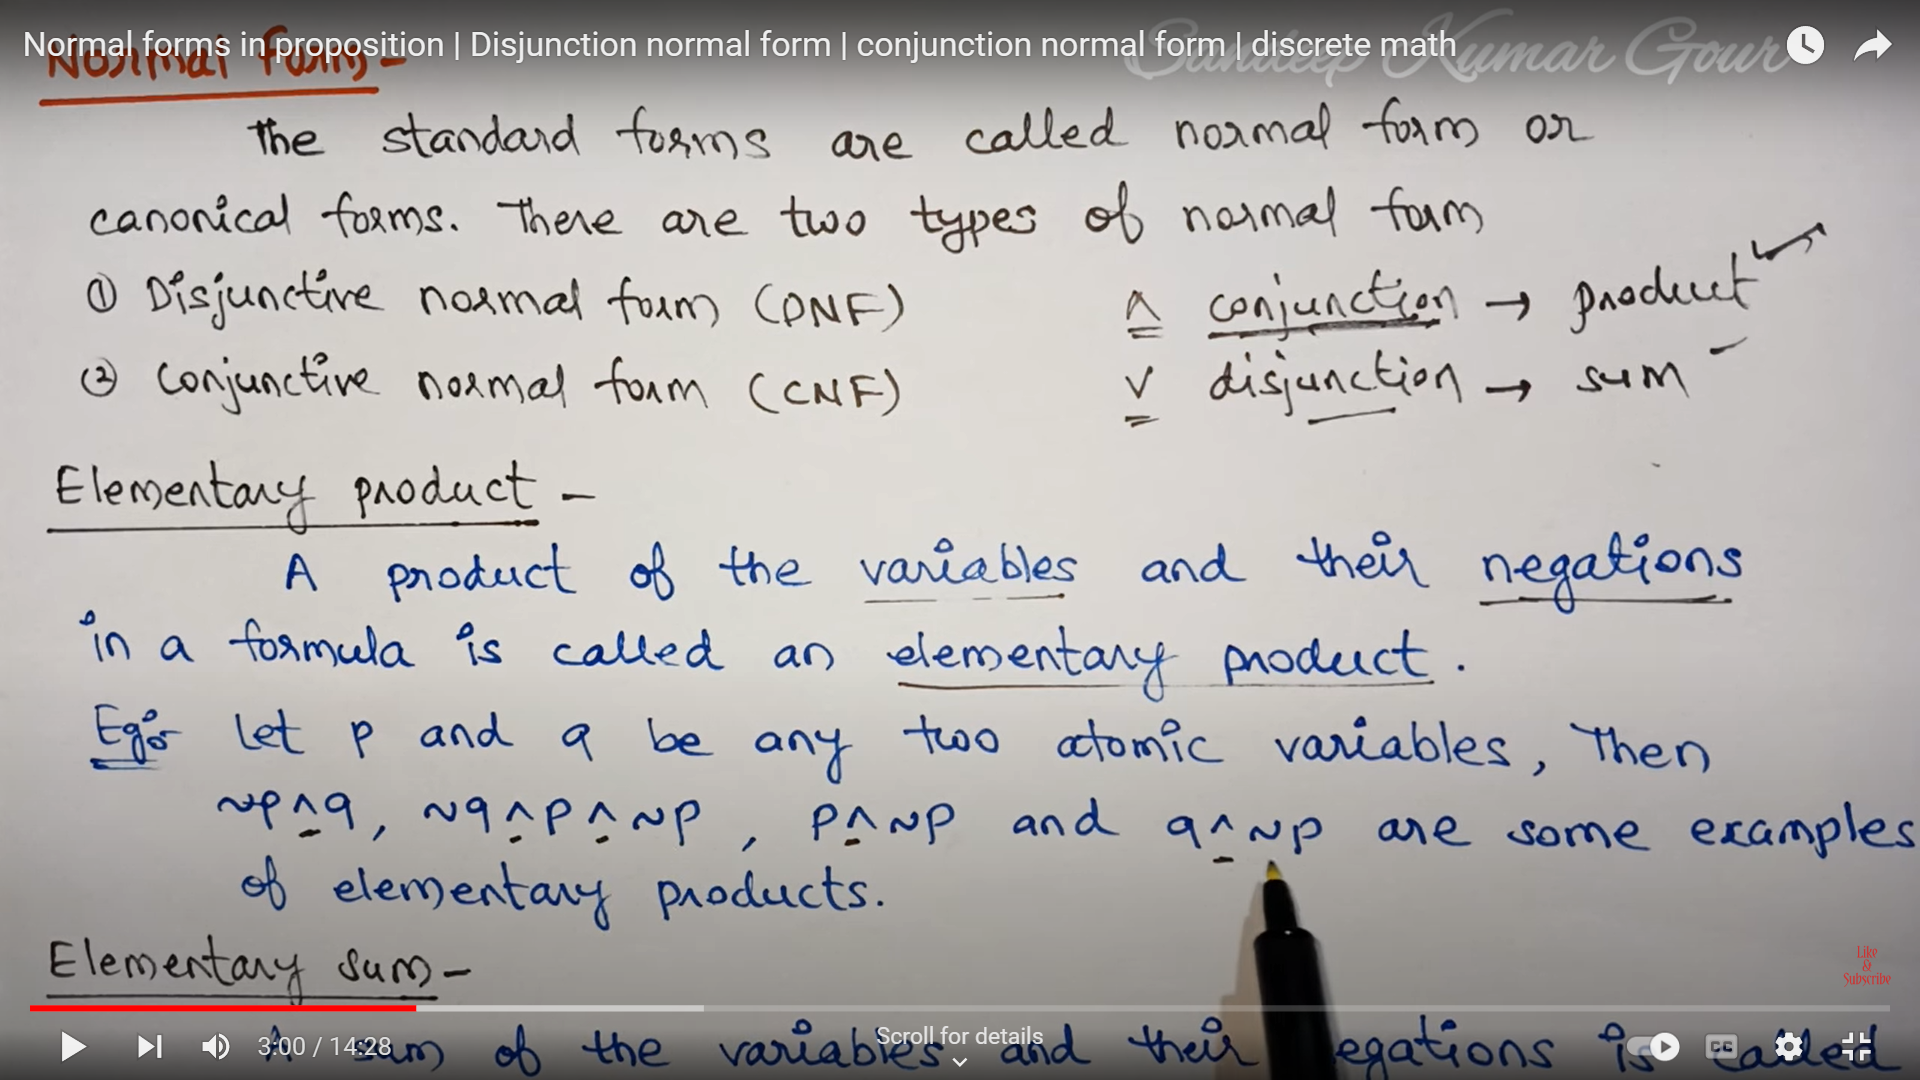 Normal forms in proposition | Disjunction normal form | conjunction normal form | discrete math
Sandeep Kumar Gour
Normal form-
The standard forms are called normal form or
canonical forms. There are two types of normal form
① Disjunctive normal form (DNF)
∧ conjunction → product
② Conjunctive normal form (CNF)
∨ disjunction → sum
Elementary product -
A product of the variables and their negations
in a formula is called an elementary product.
Eg:- Let p and q be any two atomic variables, Then
~p∧q, ~q∧p∧~p, p∧~p and q∧~p are some examples
of elementary products.
Elementary sum-
Like
&
Subscribe
A sum of the variables and their negations is called
3:00 / 14:28
Scroll for details
CC